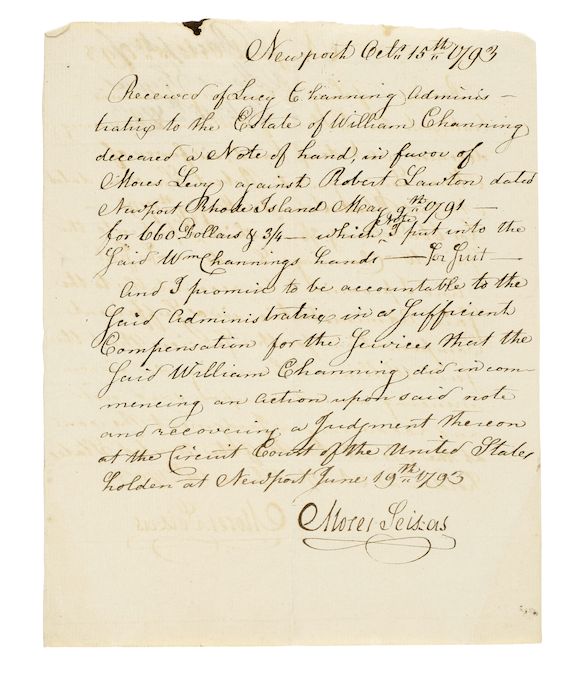 Newport Octr 15th 1793
Received of Lucy Channing Adminis-
tratrix to the Estate of William Channing
deceased a Note of hand, in favor of
Moses Levy against Robert Lawton dated
Newport Rhode Island May 9th 1791 —
for 660 Dollars & 3/4 — which Note I put into the
Said Wm Channings hands — for Suit —
And I promise to be accountable to the
Said Administratrix in a Sufficient
Compensation for the Services that the
Said William Channing did in com-
mencing an action upon said note
and recovering a Judgment thereon
at the Circuit Court of the United States
holden at Newport June 19th 1793
Moses Seixas